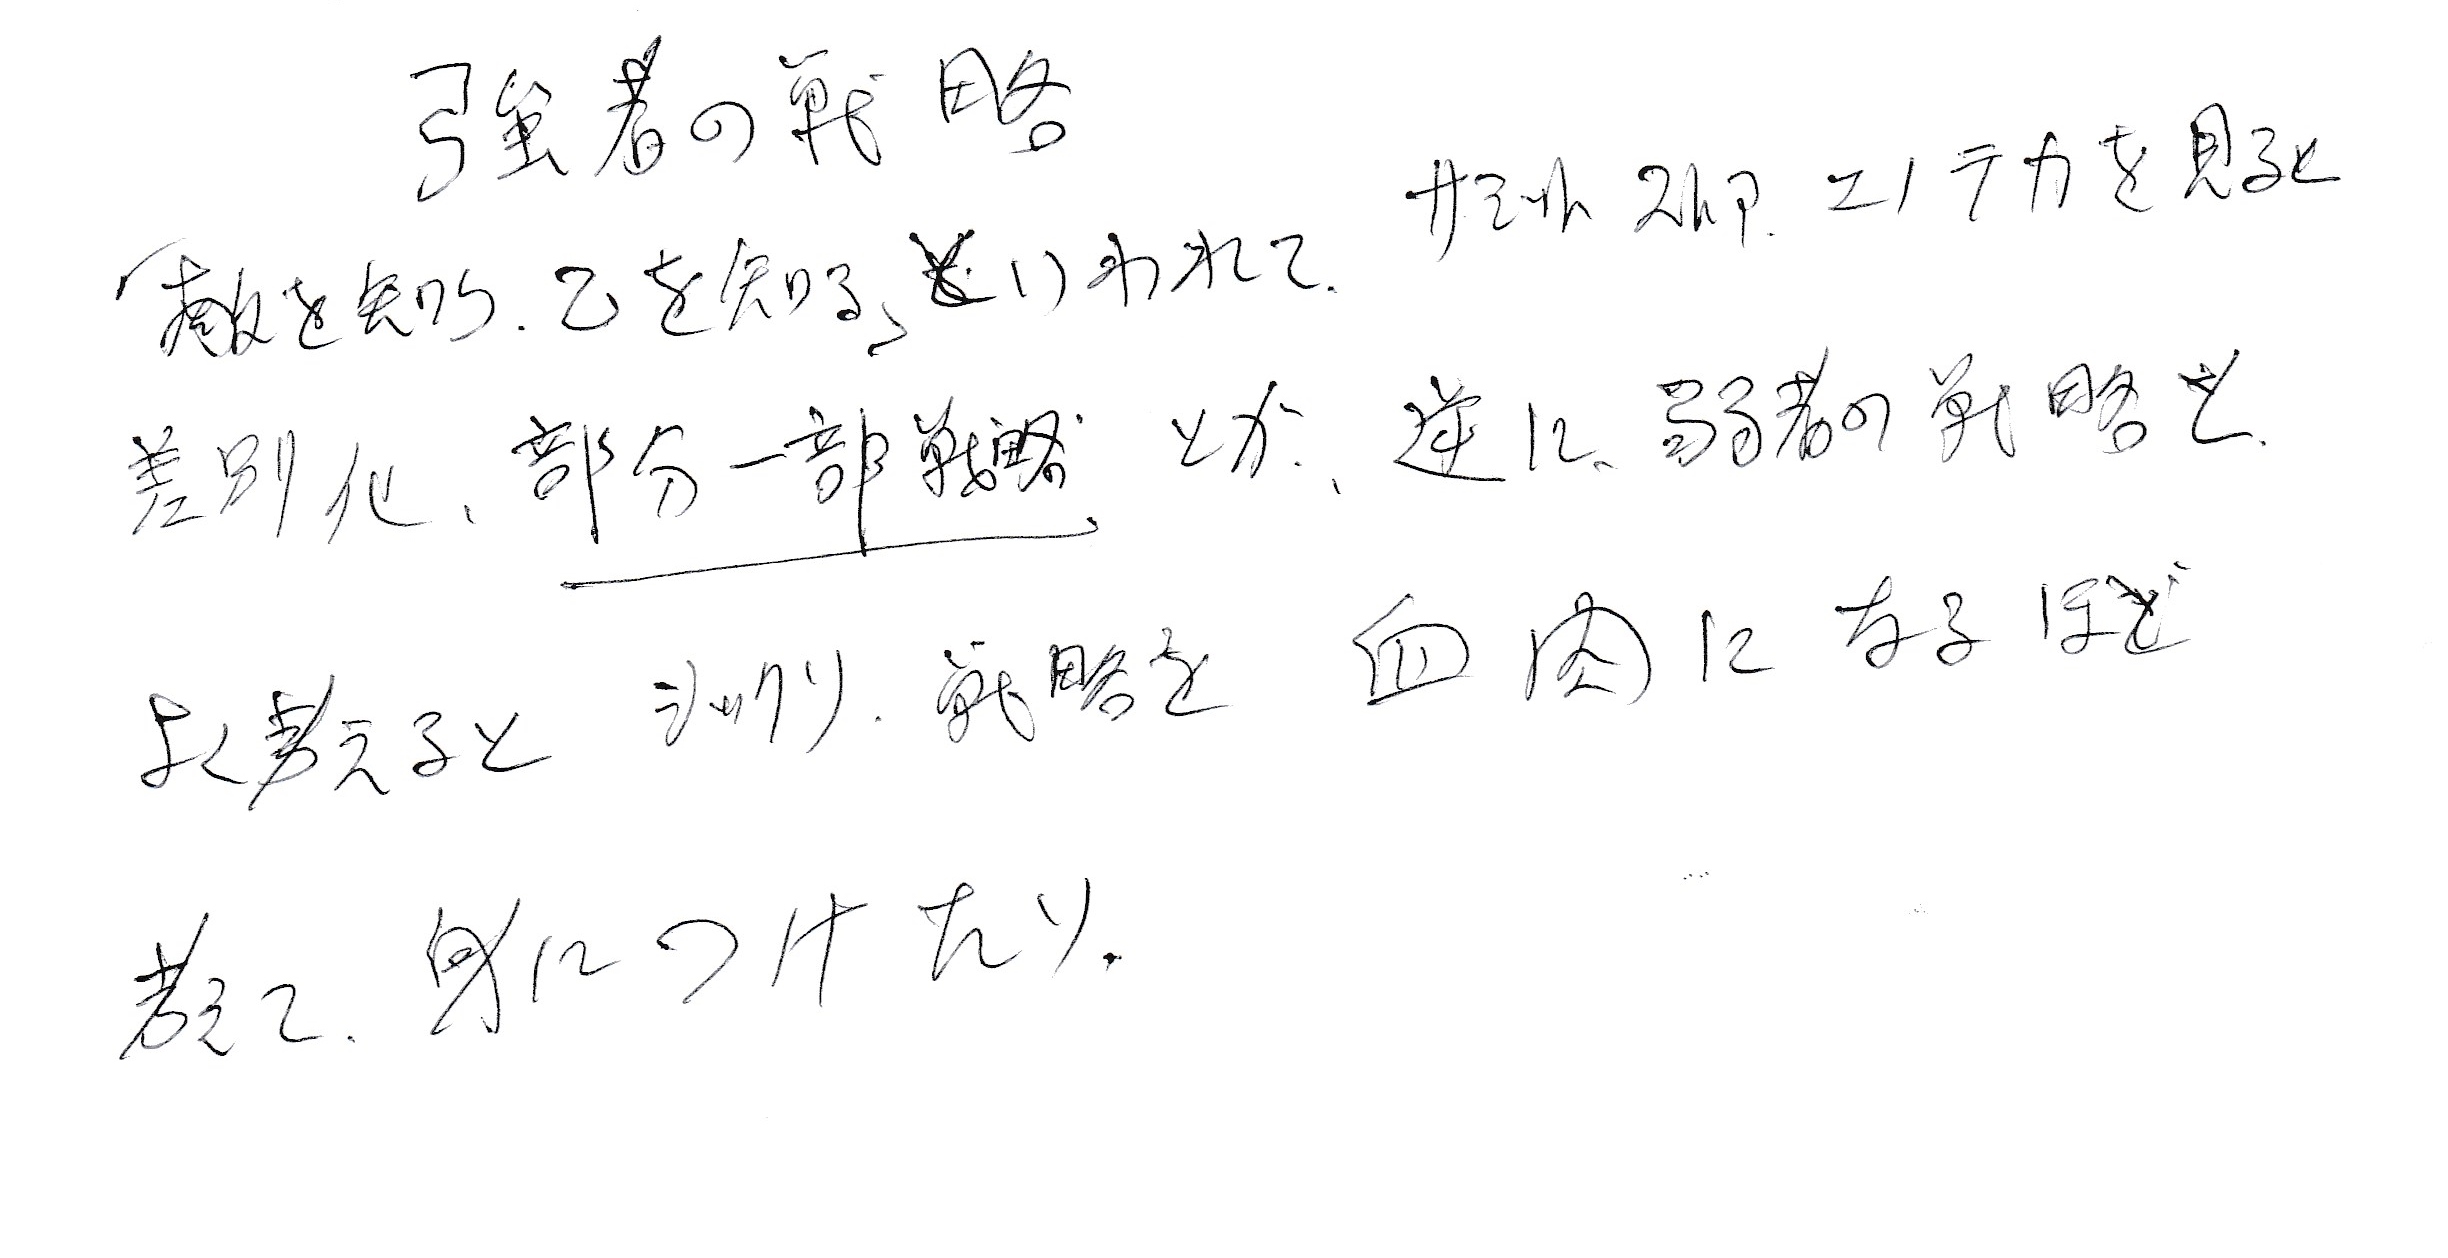 強者の戦略
「敵を知り、己を知る」といわれて、サミット ストア、エノテカを見ると
差別化、部分一部戦略とか、逆に、弱者の戦略を、
よく考えると シックリ、戦略を 血肉になるほど
考えて、身につけたり、